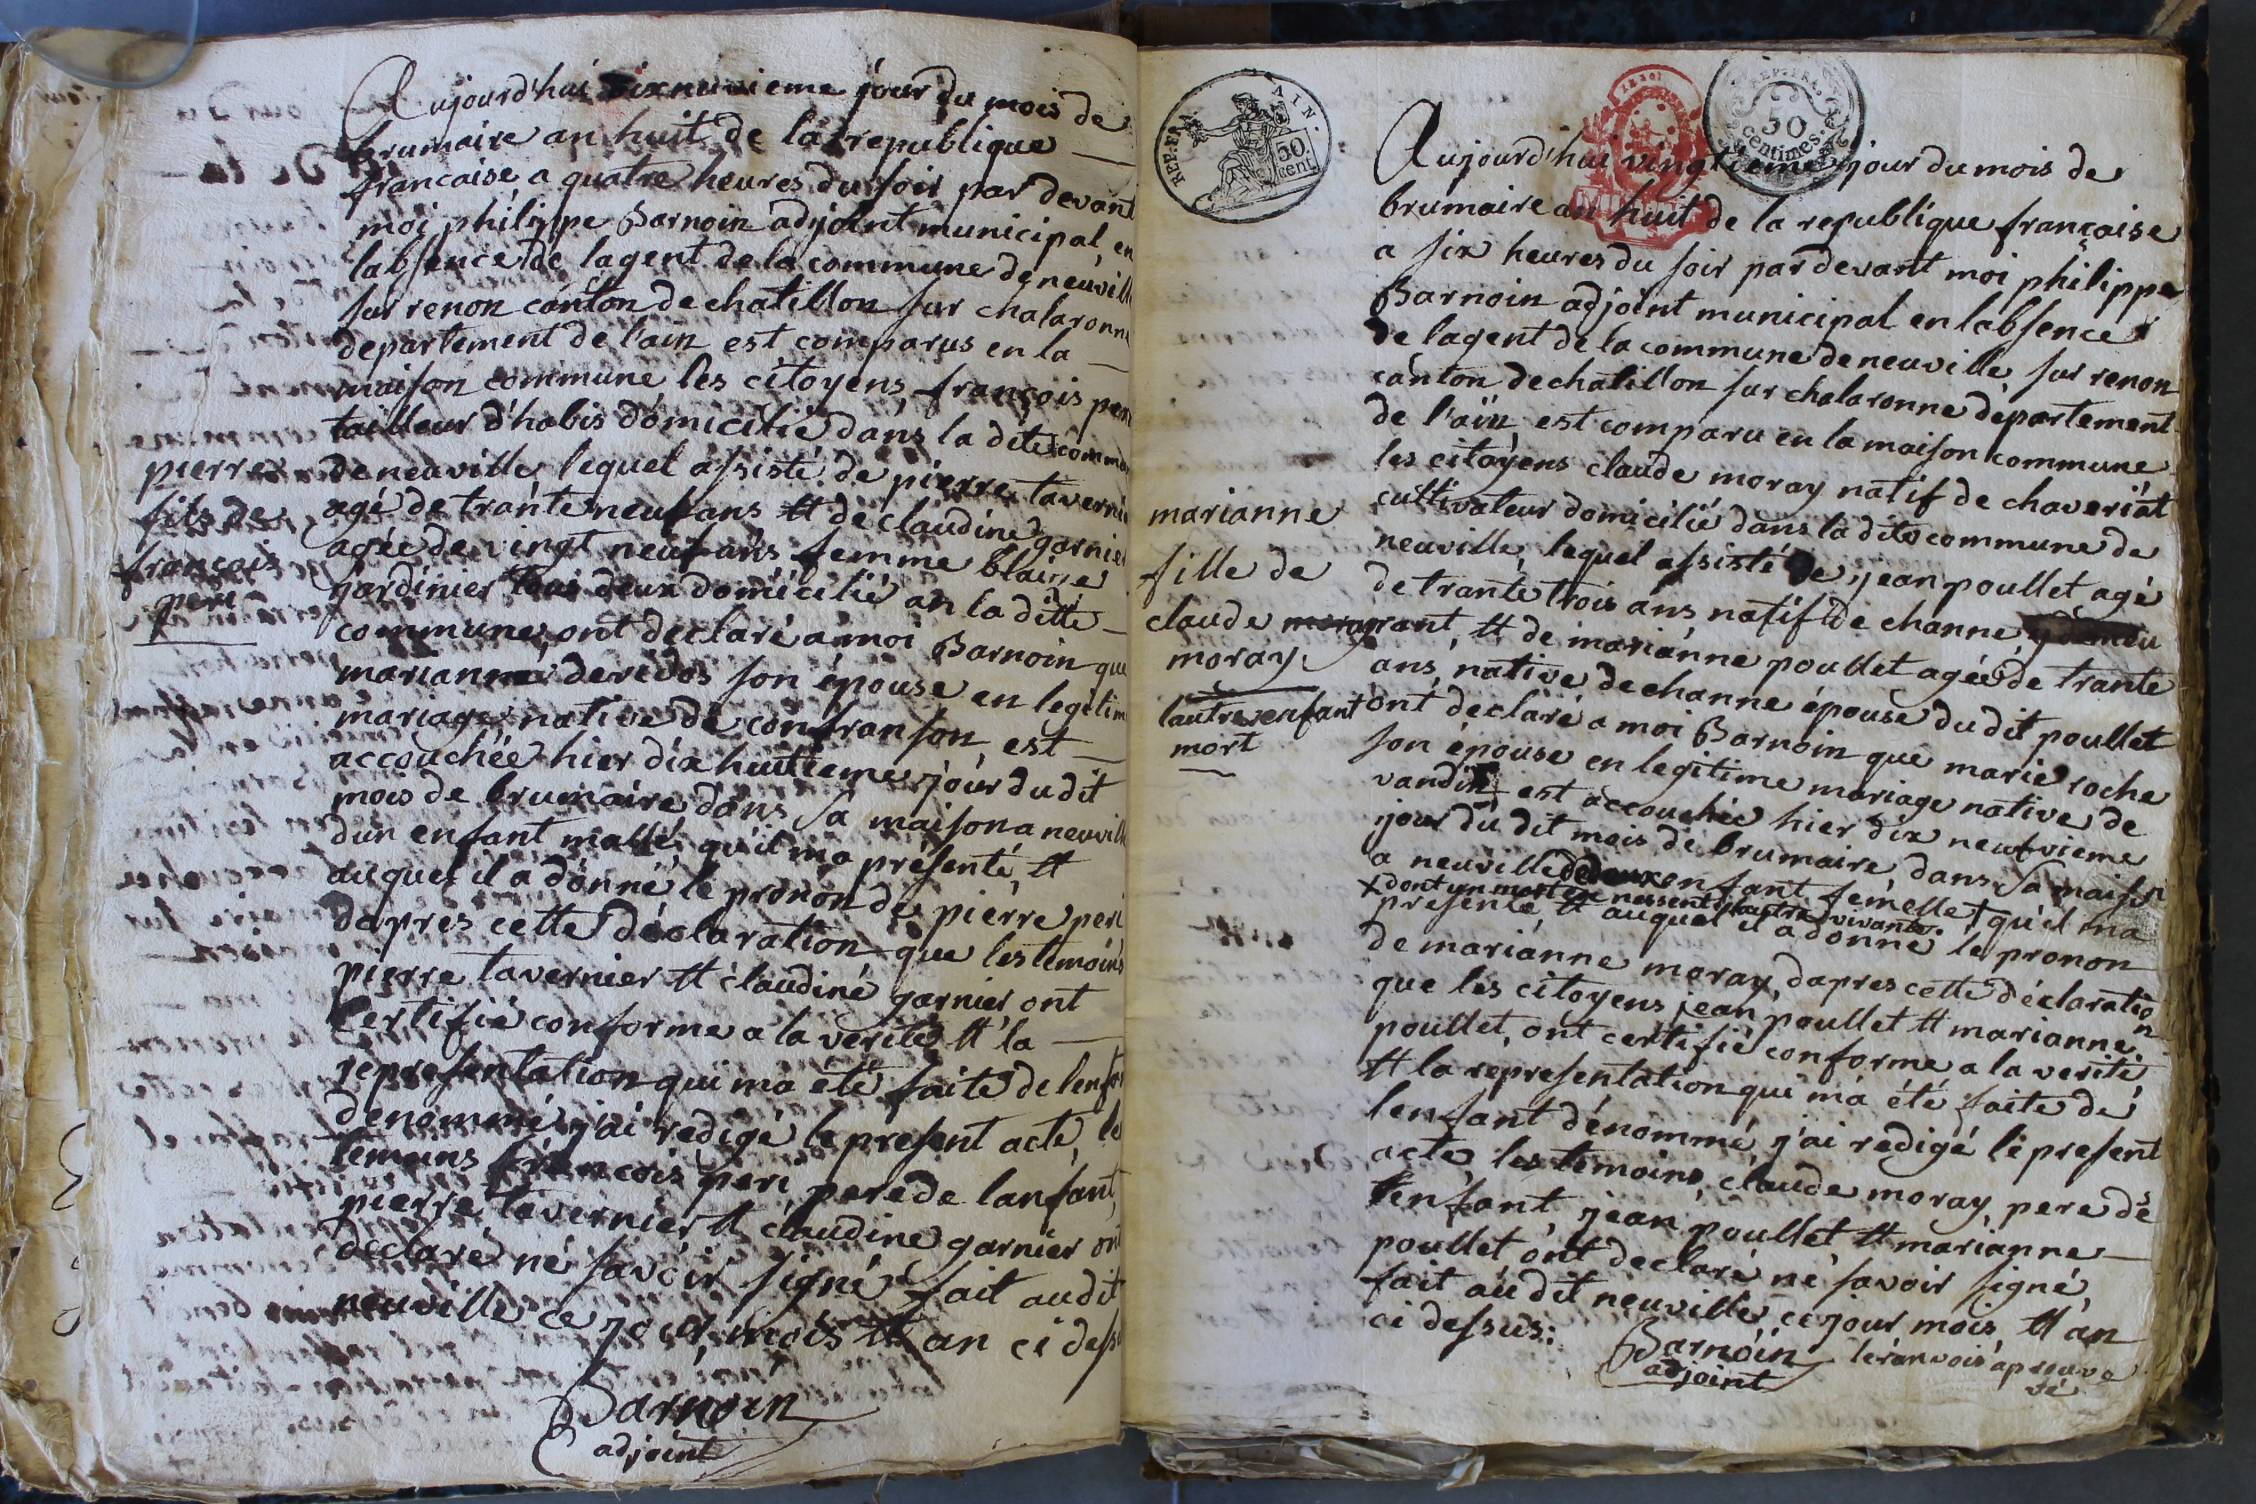 Aujourd'hui dixneuvieme jour du mois de
brumaire an huit de la republique
francaise, a quatre heures du soir par devant
moi philippe Barnoin adjoint municipal en
labsence de lagent de la commune de neuvill
sur renon canton de chatillon sur chalaronn
departement de l'ain est comparus en la
maison commune les citoyens françois peri
tailleur d'habis domicilié dans la dite comm
de neuville lequel assisté de pierre taverni
agé de trante neuf ans et de claudine garnier
agée de vingt neuf ans femme blaise
jardinier tous deux domicilié an la ditte
commune, ont declaré a moi Barnoin que
marianne deredos son épouse en legitim
mariage, native de confranson est
accouchée hier dix huitieme jour du dit
mois de brumaire dans sa maison a neuvill
dun enfant malle, qu'il ma présenté, et
auquel il a donné le pronon de pierre peri
dapres cette déclaration que les temoins
pierre tavernier et claudine garnier ont
certifié conforme a la verité et la
representation qui ma été faite de lenfa
denommé j'ai redigé le present acte, le
temoins françois peri pere de lanfant,
pierre tavernier et claudine garnier ont
declaré ne savoir signé fait au dit
neuville ce jour, mois et an ci dess
Barnoin
adjoint
pierre
fils de
françois
peri
REP. FRA.
AIN.
50
cent
REP. FRA.
50
centimes.
Aujourd'hui vingtieme jour du mois de
brumaire an huit de la republique française
a six heures du soir par devant moi philippe
Barnoin adjoint municipal en labsence
de lagent de la commune de neuville sur renon
canton de chatillon sur chalaronne departement
de l'ain est comparu en la maison commune
les citoyens claude moray natif de chaveriat
cultivateur domicilié dans la dite commune de
neuville, lequel assisté de jean poullet agé
de trante trois ans natif de channe,
rant, et de marianne poullet agée de trante
ans, native de channe épouse du dit poullet
ont declaré a moi Barnoin que marie roche
son épouse en legitime mariage native de
vandin, est accouchée hier dix neufvieme
jour du dit mois de brumaire dans sa maison
a neuville de deux enfant femelle + qu'il ma
+ dont un mort en nessent lautre vivante.
presenté, et auquel il a donné le pronon
de marianne moray, dapres cette déclaration
que les citoyens jean poullet et marianne
poullet, ont certifié conforme a la verité
et la representation qui ma été faite de
lenfant dénommé, j'ai redigé le present
acte, les temoins, claude moray pere de
lenfant jean poullet et marianne
poullet ont declaré ne savoir signé,
fait au dit neuville ce jour mois et an
ci dessus:
Barnoin
adjoint
le ranvois apreuvé
vé
marianne
fille de
claude
moray
lautre enfant
mort